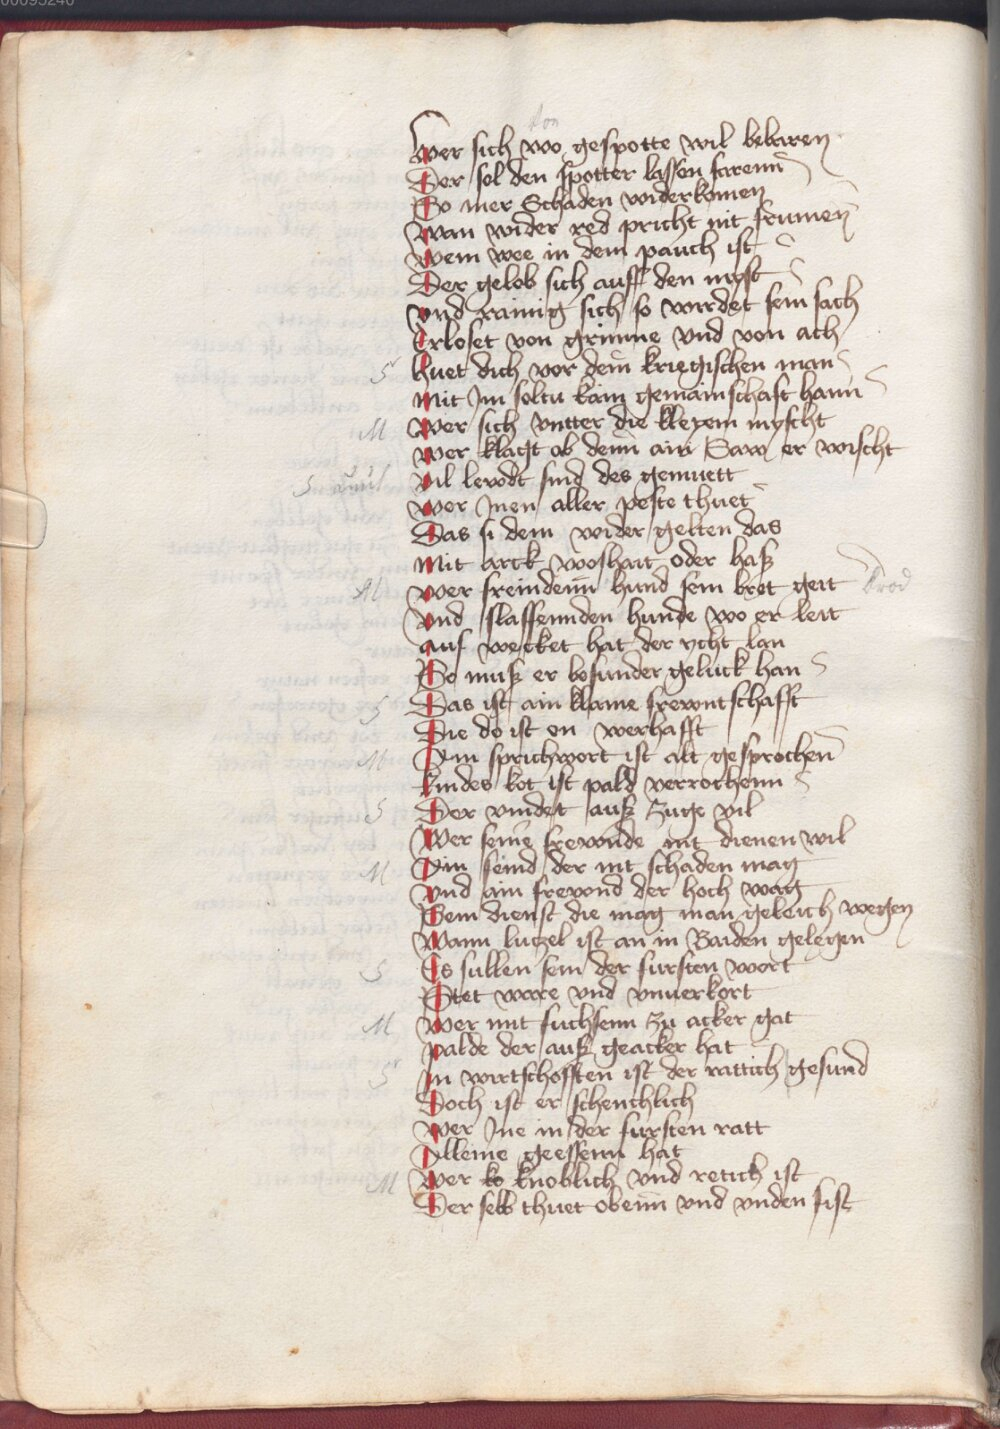 00095240
von
Wer sich wo gespotte wil bebaren
Der sol den spotter lassen farenn
So mer Schaden widerkomen
Wan wider red pricht nit frumen
Wem wee in dem pauch ist
Der gelob sich auff den myst
Vnd rainig sich so wirdet sein sach
Erloset von grimme vnd von ach
S huet dich vor dem kriegischen man
Mit Im soltu kain gemainschaft hann
M Wer sich vntter die kleyem myscht
Wer klagt ob denn ain Saw er wischt
S Vil lewdt sind des gemuett
Wer Inen aller peste thuet
Das si dem wider gelten das
Mit arck poshait oder haß
M Wer freindenn hund sein bret geit brod
Vnd slaffennden hunde wo er leit
Auf wecket hat der ycht lan
So muß er besunder geluck han
S Das ist ain klaine frewntschafft
Die do ist on werhafft
M Ain sprichwort ist alt gesprochen
kindes kot ist pald verrochenn
S Der vindet auß zuge vil
Wer seine frewnde nit dienen wil
M Ain feind der nit schaden mag
Vnd ain frewnd der hoch wag
Sein dienst die mag man geleich wegen
Wann lutzel ist an in Baiden gelegen
S Es sullen sein der fursten wort
Stet ware vnd vnuerkort
M Wer mit fuchsenn zu acker gat
Palde der auß geacker hat
S In wirtschofften ist der rattich gesund
Doch ist er schenchlich
Wer Ine in der fursten ratt
Alleine geessenn hat
M Wer ko knoblich vnd retich ist
Der selb thuet obenn vnd vnden fist